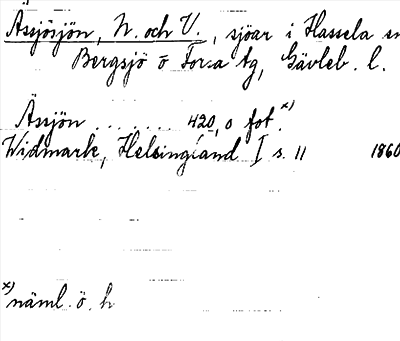 Åssjösjön, N. och V., sjöar i Hassela sn
Bergsjö o Forsa tg, Gävleb. l.
Åssjön ....... 420,0 fot.x)
Widmark, Helsingland I s. 11 1860
x) näml. ö. h